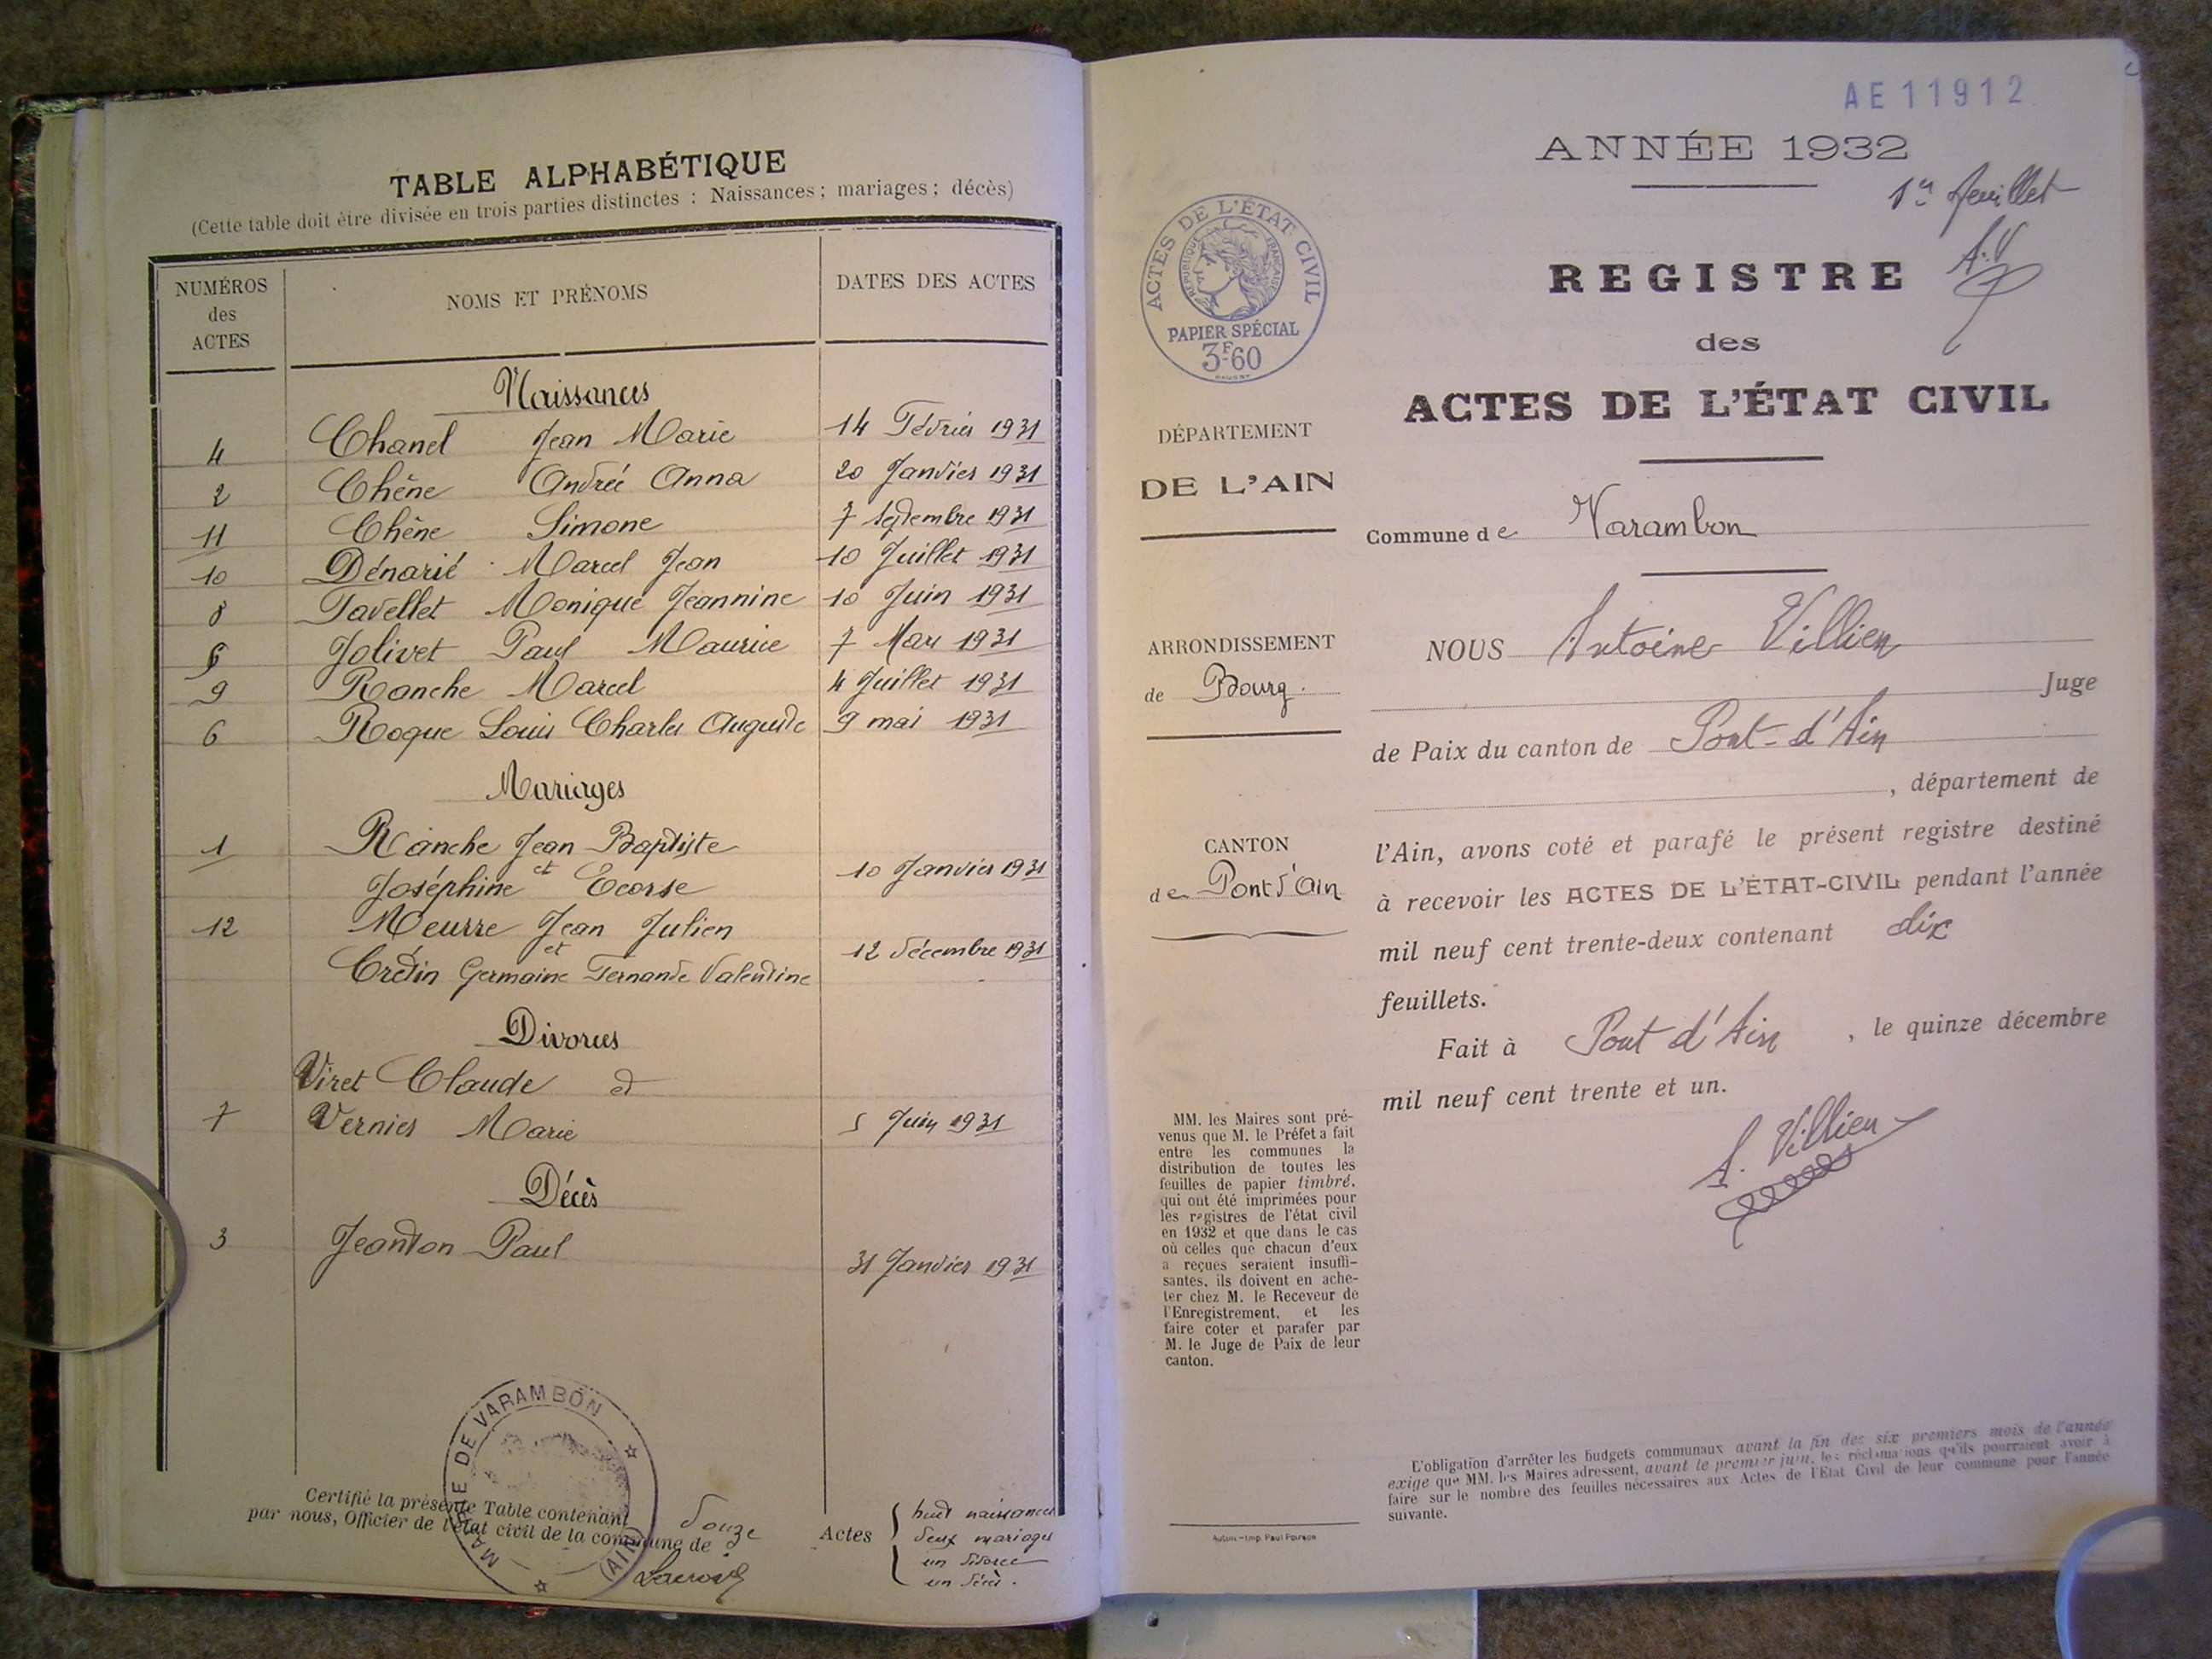 TABLE ALPHABÉTIQUE
(Cette table doit être divisée en trois parties distinctes : Naissances ; mariages ; décès)
NUMÉROS des ACTES NOMS ET PRÉNOMS DATES DES ACTES
Naissances
4 Chanel Jean Marie 14 Février 1931
2 Chêne Andrée Anna 20 Janvier 1931
11 Chêne Simone 7 Septembre 1931
10 Dénarié Marcel Jean 10 Juillet 1931
8 Favellet Monique Jeannine 10 Juin 1931
5 Jolivet Paul Maurice 7 Mars 1931
9 Ronche Marcel 4 Juillet 1931
6 Roque Louis Charles Auguste 9 mai 1931
Mariages
1 Ranche Jean Baptiste
et
Joséphine Ecorse 10 Janvier 1931
12 Meurre Jean Julien
et 12 décembre 1931
Crétin Germaine Fernande Valentine
Divorces
Viret Claude et
7 Vernier Marie 5 Juin 1931
Décès
3 Jeanton Paul
31 Janvier 1931
MAIRIE DE VARAMBON
(AIN)
Certifié la présente Table contenant douze Actes
par nous, Officier de l'état civil de la commune de
huit naissances
deux mariages
un divorce
un décès.
AE11912
ANNÉE 1932
1er feuillet
A.V
ACTES DE L'ÉTAT CIVIL
RÉPUBLIQUE FRANÇAISE
PAPIER SPÉCIAL
3F60
REGISTRE
des
ACTES DE L'ÉTAT CIVIL
DÉPARTEMENT
DE L'AIN
Commune de Varambon
ARRONDISSEMENT
de Bourg.
CANTON
de Pont d'Ain
NOUS Antoine Villien
Juge
de Paix du canton de Pont-d'Ain
, département de
l'Ain, avons coté et parafé le présent registre destiné
à recevoir les ACTES DE L'ÉTAT-CIVIL pendant l'année
mil neuf cent trente-deux contenant dix
feuillets.
Fait à Pont d'Ain , le quinze décembre
mil neuf cent trente et un.
A. Villien
MM. les Maires sont pré-
venus que M. le Préfet a fait
entre les communes la
distribution de toutes les
feuilles de papier timbré.
qui ont été imprimées pour
les registres de l'état civil
en 1932 et que dans le cas
où celles que chacun d'eux
a reçues seraient insuffi-
santes, ils doivent en ache-
ter chez M. le Receveur de
l'Enregistrement, et les
faire coter et parafer par
M. le Juge de Paix de leur
canton.
L'obligation d'arrêter les budgets communaux avant la fin des six premiers mois de l'année
exige que MM. les Maires adressent, avant le premier juin, les réclamations qu'ils pourraient avoir à
faire sur le nombre des feuilles nécessaires aux Actes de l'État Civil de leur commune pour l'année
suivante.
Autun – Imp. Paul Poirson